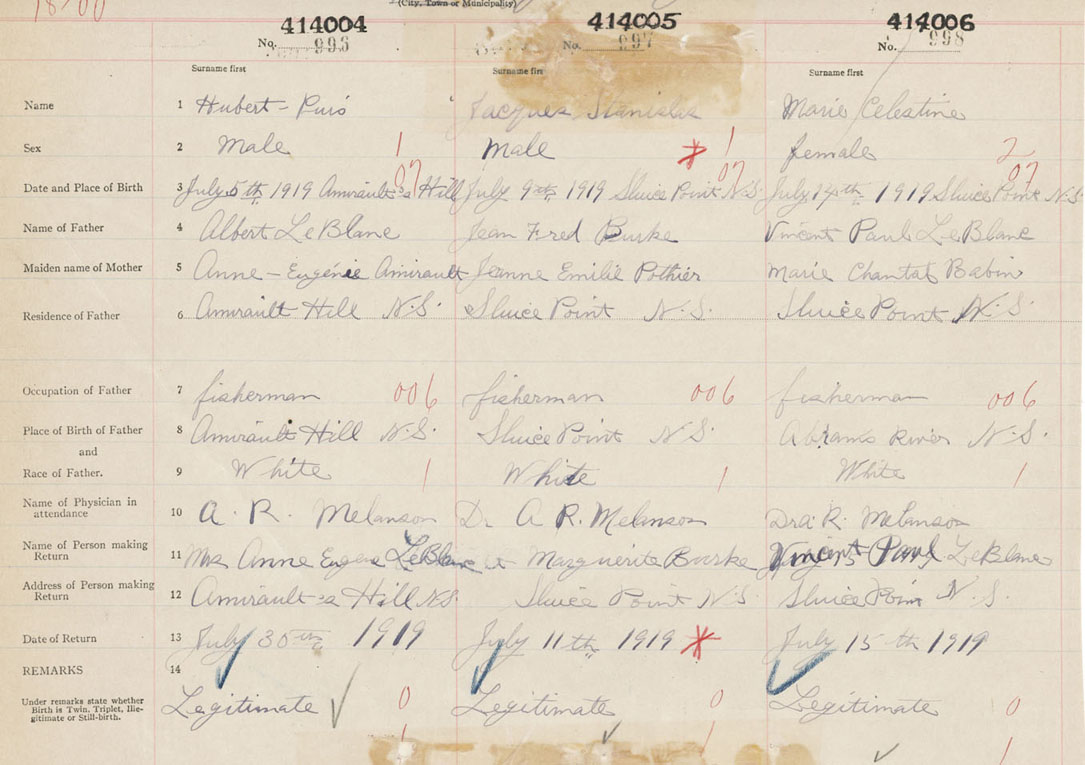 (City, Town or Municipality)
414004 414005 414006
No. 996 No. 997 No. 998
Surname first Surname first Surname first
Name 1 Hubert - Jacques Stanislas Marie Celestine
Sex 2 Male 1 Male * 1 female 2
07 07 07
Date and Place of Birth 3 July 5th, 1919 Amirault's Hill July 9th, 1919 Sluice Point N.S. July 14th 1919 Sluice Point N.S.
Name of Father 4 Albert LeBlanc Jean Fred Burke Vincent Paul LeBlanc
Maiden name of Mother 5 Anne - Eugénie Amirault Jeanne Emilie Pothier Marie Chantal Babin
Residence of Father 6 Amirault Hill N.S. Sluice Point N.S. Sluice Point N.S
Occupation of Father 7 fisherman 006 fisherman 006 fisherman 006
Place of Birth of Father 8 Amirault Hill N.S. Sluice Point N.S. Abrams River N.S.
and
Race of Father. 9 White 1 White 1 White 1
Name of Physician in
attendance 10 A. R. Melanson Dr A R. Melanson Dr A R. Melanson
Name of Person making
Return 11 Mrs Anne Eugene LeBlanc Marguerite Burke Vincent Paul LeBlanc
Address of Person making
Return 12 Amirault's Hill N.S. Sluice Point N S Sluice Point N.S.
Date of Return 13 July 30th 1919 July 11th 1919 * July 15th 1919
REMARKS 14
Under remarks state whether
Birth is Twin, Triplet, Ille-
gitimate or Still-birth.
Legitimate 0 Legitimate 0 Legitimate 0
1 1 1